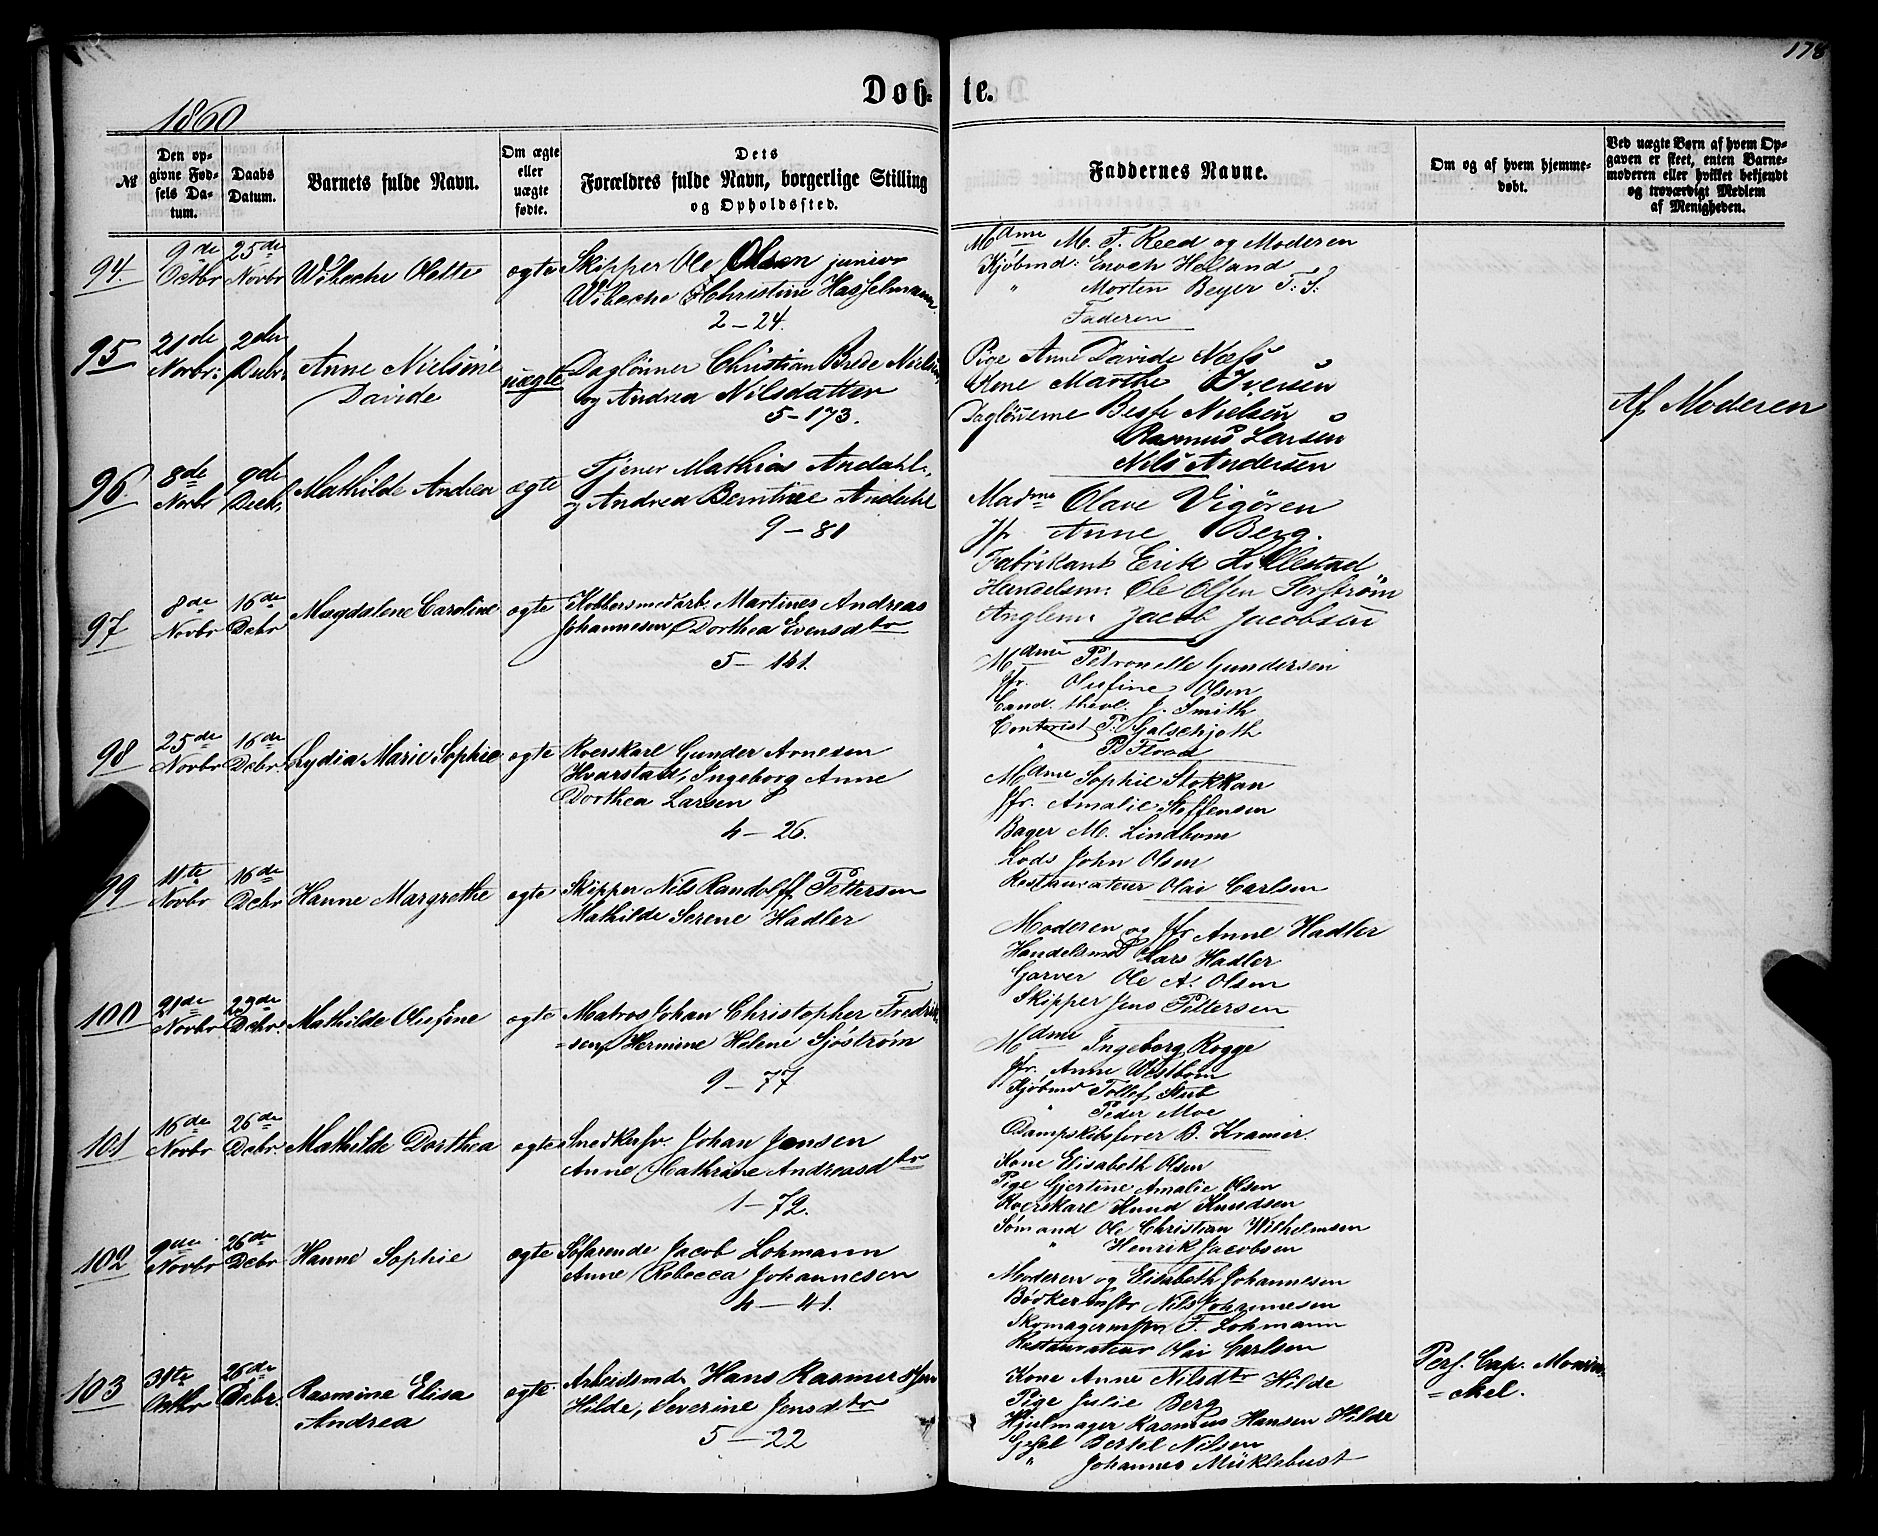 178
Døb- te.
1860
№
Den op-
givne Fød-
sels Da-
tum.
Daabs
Datum.
Barnets fulde Navn.
Om ægte
eller
uægte
fødte.
Dets
Forældres fulde Navn, borgerlige Stilling
og Opholdssted.
Faddernes Navne.
Om og af hvem hjemme-
døbt.
Ved uægte Børn af hvem Op-
gaven er skeet, enten Barne-
moderen eller hvilket bekjendt
og troværdigt Medlem
af Menigheden.
94.
9de
Octbr
25de
Novbr
Wibeche Olette
ægte
Skipper Ole Olsen junior
Wibeche Christine Hasselmann
2-24.
Mdme M. F. Reed og Moderen
Kjøbmd: Enoch Helland
" Morten Beyer T. S.
Faderen
95
21de
Novbr:
2den
Decbr.
Anne Nielsine
Davide
uægte
Daglönner Christian Brede Nielsen
og Andrea Nilsdatter
5-173.
Pige Anne Davide Næss
Kone Marthe Iversen
Daglönnerne Nielsen
Rasmus Larsen
Nils Andersen
Af Moderen
96
8de
Novbr
9de
Decb.
Mathilde Andrea
ægte
Tjener Mathias Andahl
og Andrea Berntine Andahl
9-81
Madme Olave Vigören
Jfr Anne Berg.
Fabrikant Erik Hillestad
Handelsm: Ole Olsen
Jacob Jacobsen
97
8de
Novbr
16de
Dcbr
Magdalene Caroline
ægte
Kobbersmedarb. Martines Andreas
Johannesen, Dorthea Evensdtr
5-141.
Mdme Petronelle Gundersen
Jfr. Olufine Olsen
Cand. theol. J. Smith
Contorist P. Galschjøth
" P. Flood
98
25de
Novbr
16de
Dcbr.
Lydia Marie Sophie
ægte
Roerskarl Gunder Arnesen
Hvarstad, Ingeborg Anne
Dorthea Larsen
4-26.
Mdme Sophie Stokkan
Jfr. Amalie Steffensen
Bager M. Lindbom
Lods John Olsen
Restaurateur Olai Carlsen
99
11te
Novbr
16de
Dcbr
Hanne Margrethe
ægte
Skipper Nils Randolff Pettersen
Mathilde Serene Hadler
Moderen og Jfr Anne Hadler
Handelsmd Lars Hadler
Garver Ole A. Olsen
Skipper Jens Pettersen
100
21de
Novbr
23de
Dcbr.
Mathilde Olufine
ægte
Matros Johan Christopher Fredrik-
=sen, Hermine Helene Sjöström
9-77
Mdme Ingeborg Rogge
Jfr. Anne Westbom
Kjøbmd Tollef Stub
" Peder Moe
Dampskibsfører B. Kramer.
101
16de
Novbr
26de
Dcbr.
Mathilde Dorthea
ægte
Snedkersv. Johan Jensen
Anne Cathrine Andreasdtr
1-72.
Kone Elisabeth Olsen
Pige Gjertine Amalie Olsen
Roerskarl Knud Knudsen
Sømand Ole Christian Wilhelmsen
" Henrik Jacobsen
102
9de
Novbr
26de
Dcbr
Hanne Sophie
ægte
Søfarende Jacob Lohmann
Anne Rebecca Johannesen
4-41.
Moderen og Elisabeth Johannesen
Bödkermstr Nils Johannesen
Skomagermstr F. Lohmann
Restaurateur Olai Carlsen
103
31te
Octbr
26de
Dcbr.
Rasmine Elisa
Andrea
ægte
Arbeidsmd Hans Rasmussen
Hilde, Severine Jensdtr
5-22
Kone Anne Nilsdtr Hilde
Pige Julie Berg
Hjulmager Rasmus Hansen Hilde
Gesel Bertel Nilsen
" Johannes Müklebust
Pers. Cap. Monra-
=ckel.